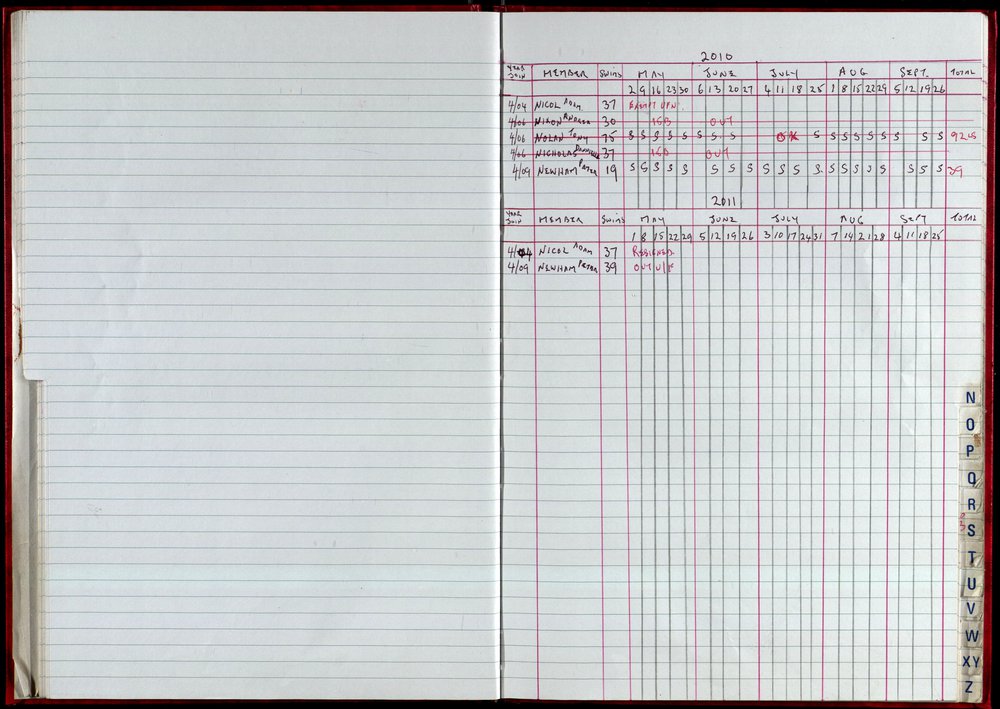 2010
YEAR JOIN MEMBER SWIMS MAY JUNE JULY AUG SEPT. TOTAL
2 9 16 23 30 6 13 20 27 4 11 18 25 1 8 15 22 29 5 12 19 26
4/04 NICOL ADAM 37 EXEMPT UFN
4/06 NIXON ANDREW 30 ISB OUT
4/06 NOLAN TONY 75 S S S S S S S S OK S S S S S S S S S
4/06 NICHOLAS 37 ISB OUT
4/09 NEWHAM PETER 19 S S S S S S S S S S S S S S S S S S S S 39
2011
YEAR JOIN MEMBER SWIMS MAY JUNE JULY AUG SEPT TOTAL
1 8 15 22 29 5 12 19 26 3 10 17 24 31 7 14 21 28 4 11 18 25
4/04 NICOL ADAM 37 RESIGNED
4/09 NEWHAM PETER 39 OUT U/F
N
O
P
Q
R
S
T
U
V
W
XY
Z